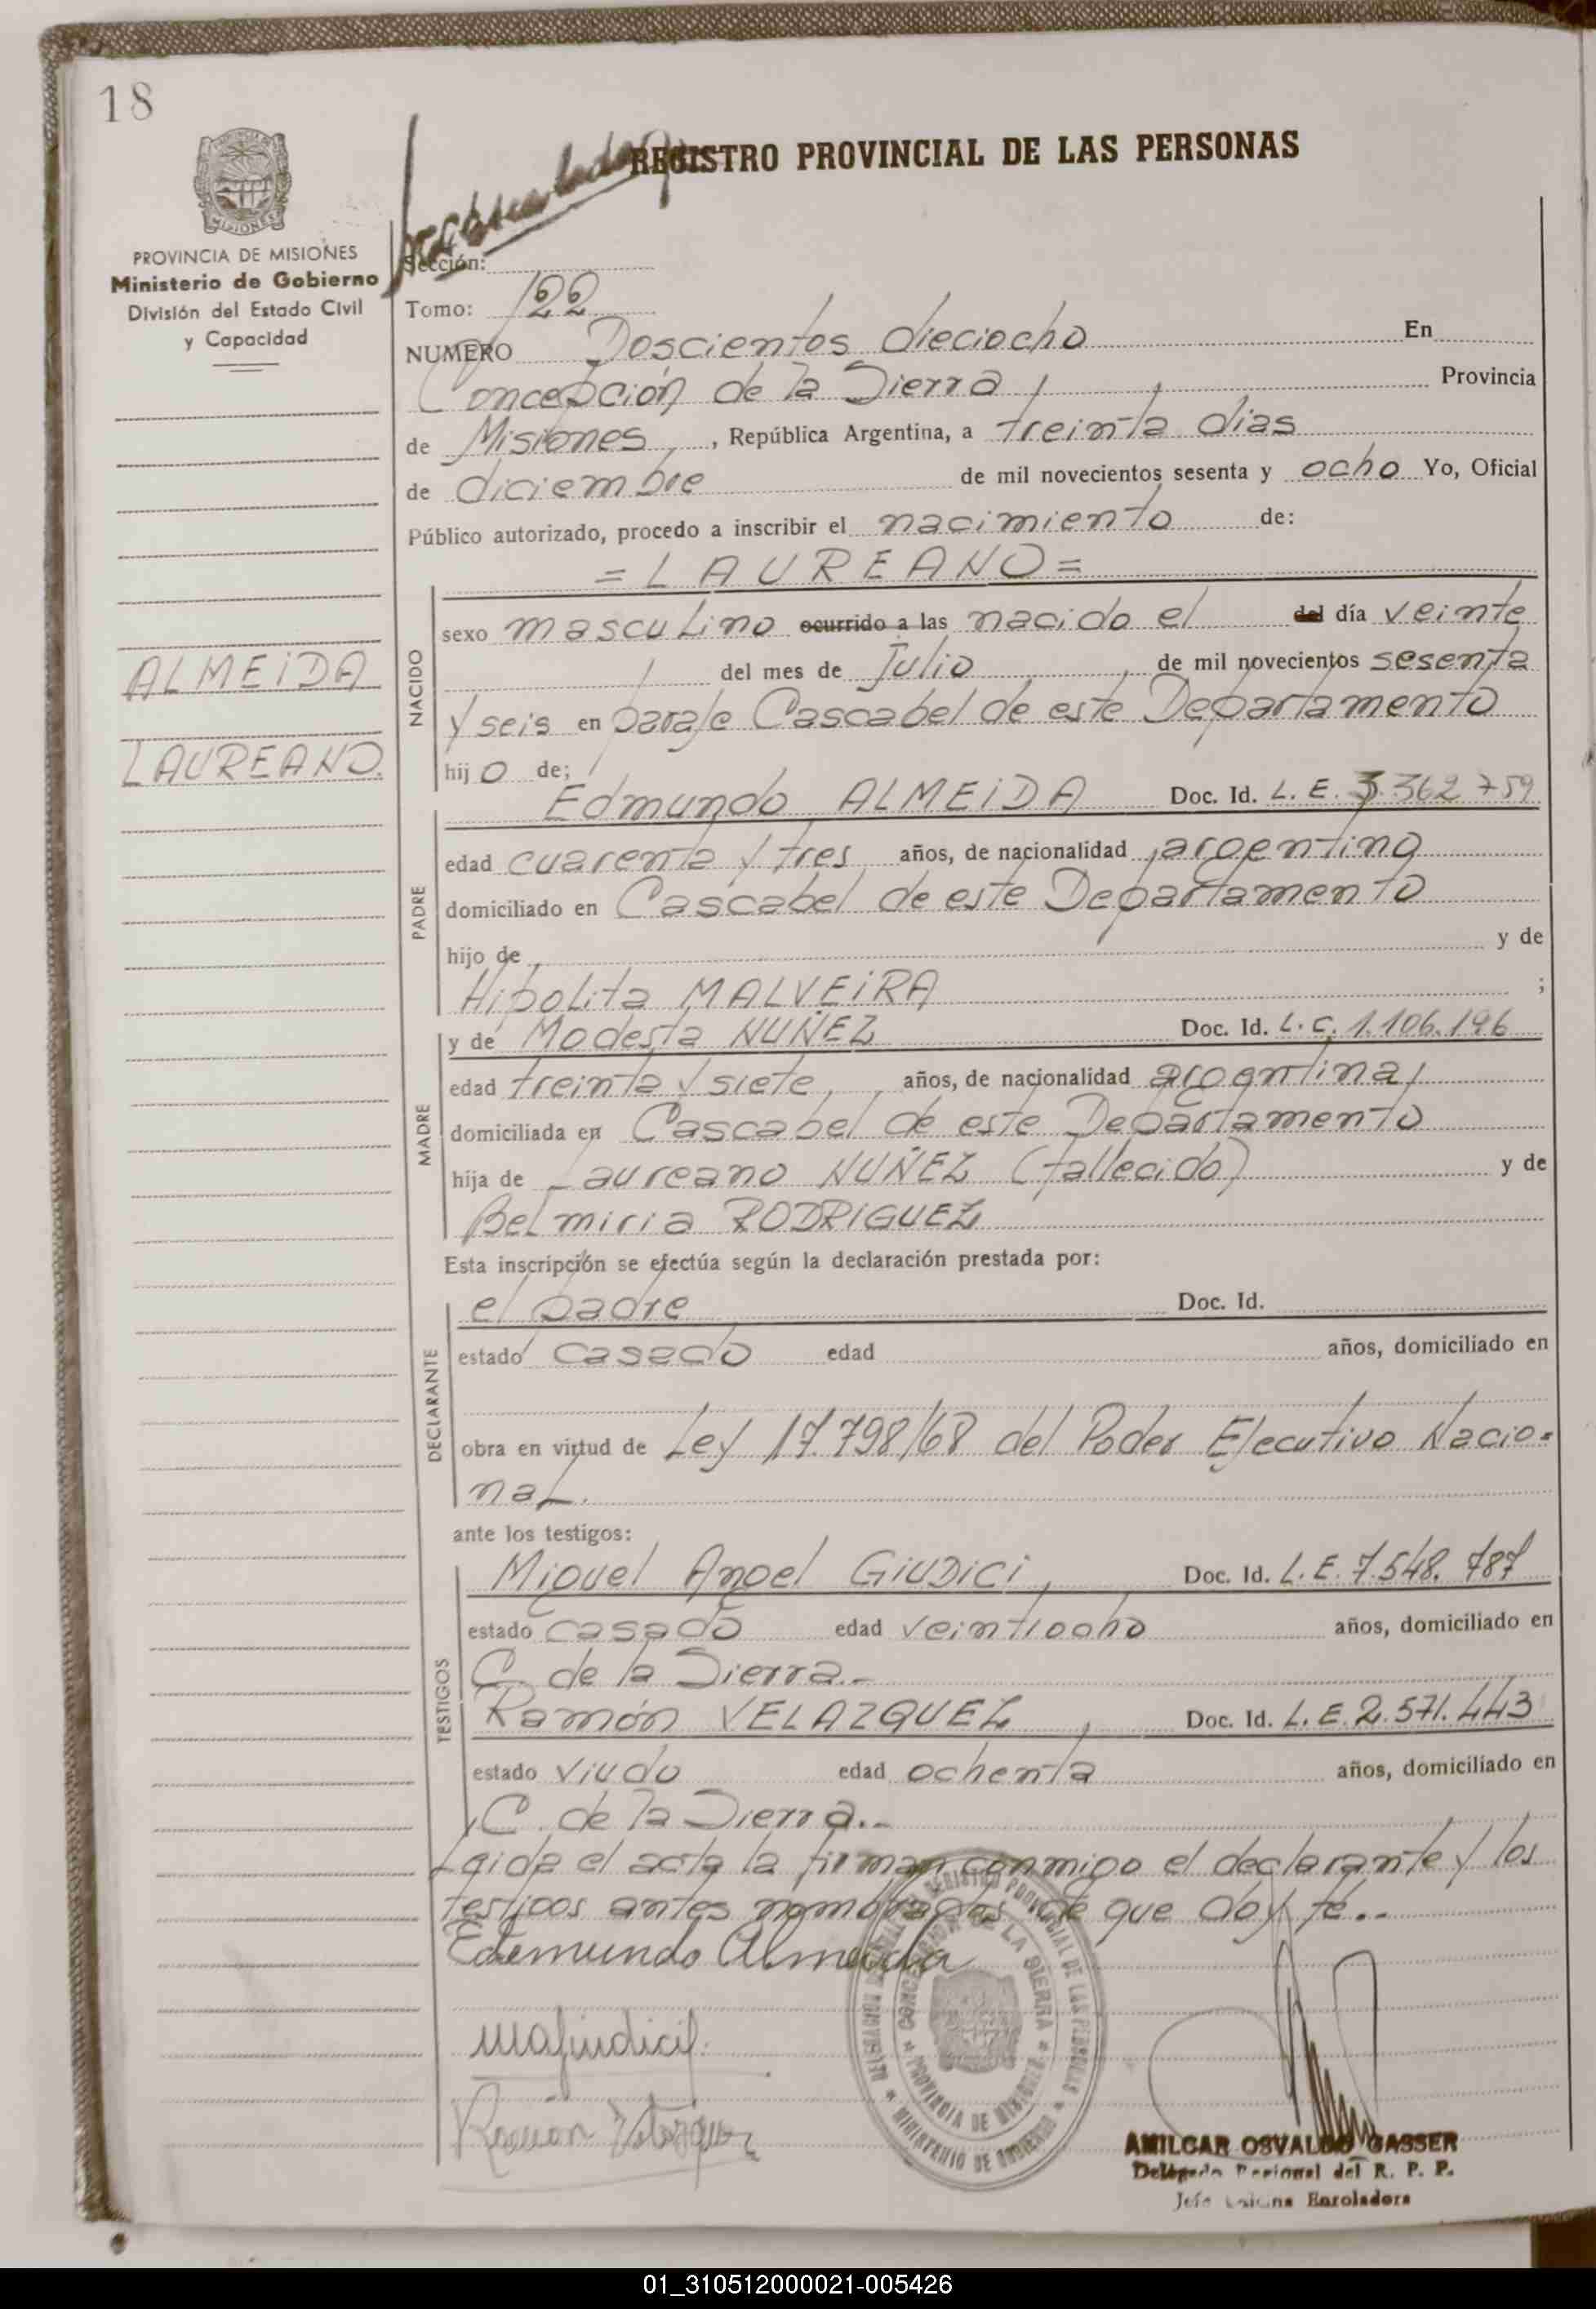 18
MISIONES
PROVINCIA DE MISIONES
Ministerio de Gobierno
División del Estado Civil
y Capacidad
ALMEIDA
LAUREANO.
REGISTRO PROVINCIAL DE LAS PERSONAS
Sección:
Tomo: 122
NUMERO Doscientos dieciocho En
Concepción de la Sierra, Provincia
de Misiones, República Argentina, a treinta dias
de diciembre de mil novecientos sesenta y ocho Yo, Oficial
Público autorizado, procedo a inscribir el nacimiento de:
= LAUREANO =
NACIDO
sexo masculino ocurrido a las nacido el del día veinte
del mes de Julio de mil novecientos sesenta
y seis en paraje Cascabel de este Departamento
hijo de;
PADRE
Edmundo ALMEIDA Doc. Id. L. E. 3.362759
edad cuarenta y tres años, de nacionalidad argentino
domiciliado en Cascabel de este Departamento
hijo de y de
Hipolita MALVEIRA ;
MADRE
y de Modesta NUÑEZ Doc. Id. L. C. 1.106.196
edad treinta y siete, años, de nacionalidad argentina,
domiciliada en Cascabel de este Departamento
hija de Laureano NUÑEZ (fallecido) y de
Belmiria RODRIGUEZ
Esta inscripción se efectúa según la declaración prestada por:
DECLARANTE
el padre Doc. Id.
estado casado edad años, domiciliado en
obra en virtud de Ley 17.798/68 del Poder Ejecutivo Nacio=
nal.
ante los testigos:
TESTIGOS
Miguel Angel GIUDICI, Doc. Id. L. E. 7.548.787
estado casado edad veintiocho años, domiciliado en
C. de la Sierra.-
Ramón VELAZQUEZ, Doc. Id. L. E. 2.571.443
estado viudo edad ochenta años, domiciliado en
C. de la Sierra.-
Leida el acta la firman conmigo el declarante y los
testigos antes nombrados de que doy fé.-
Edemundo Almeida
Ramón Velazquez
REGISTRO PROVINCIAL DE LAS PERSONAS
CONCEPCION DE LA SIERRA
PROVINCIA DE MISIONES
MINISTERIO DE GOBIERNO
AMILCAR OSVALDO GASSER
Delegado Regional del R. P. P.
Jefe Oficina Enroladora
01_310512000021-005426